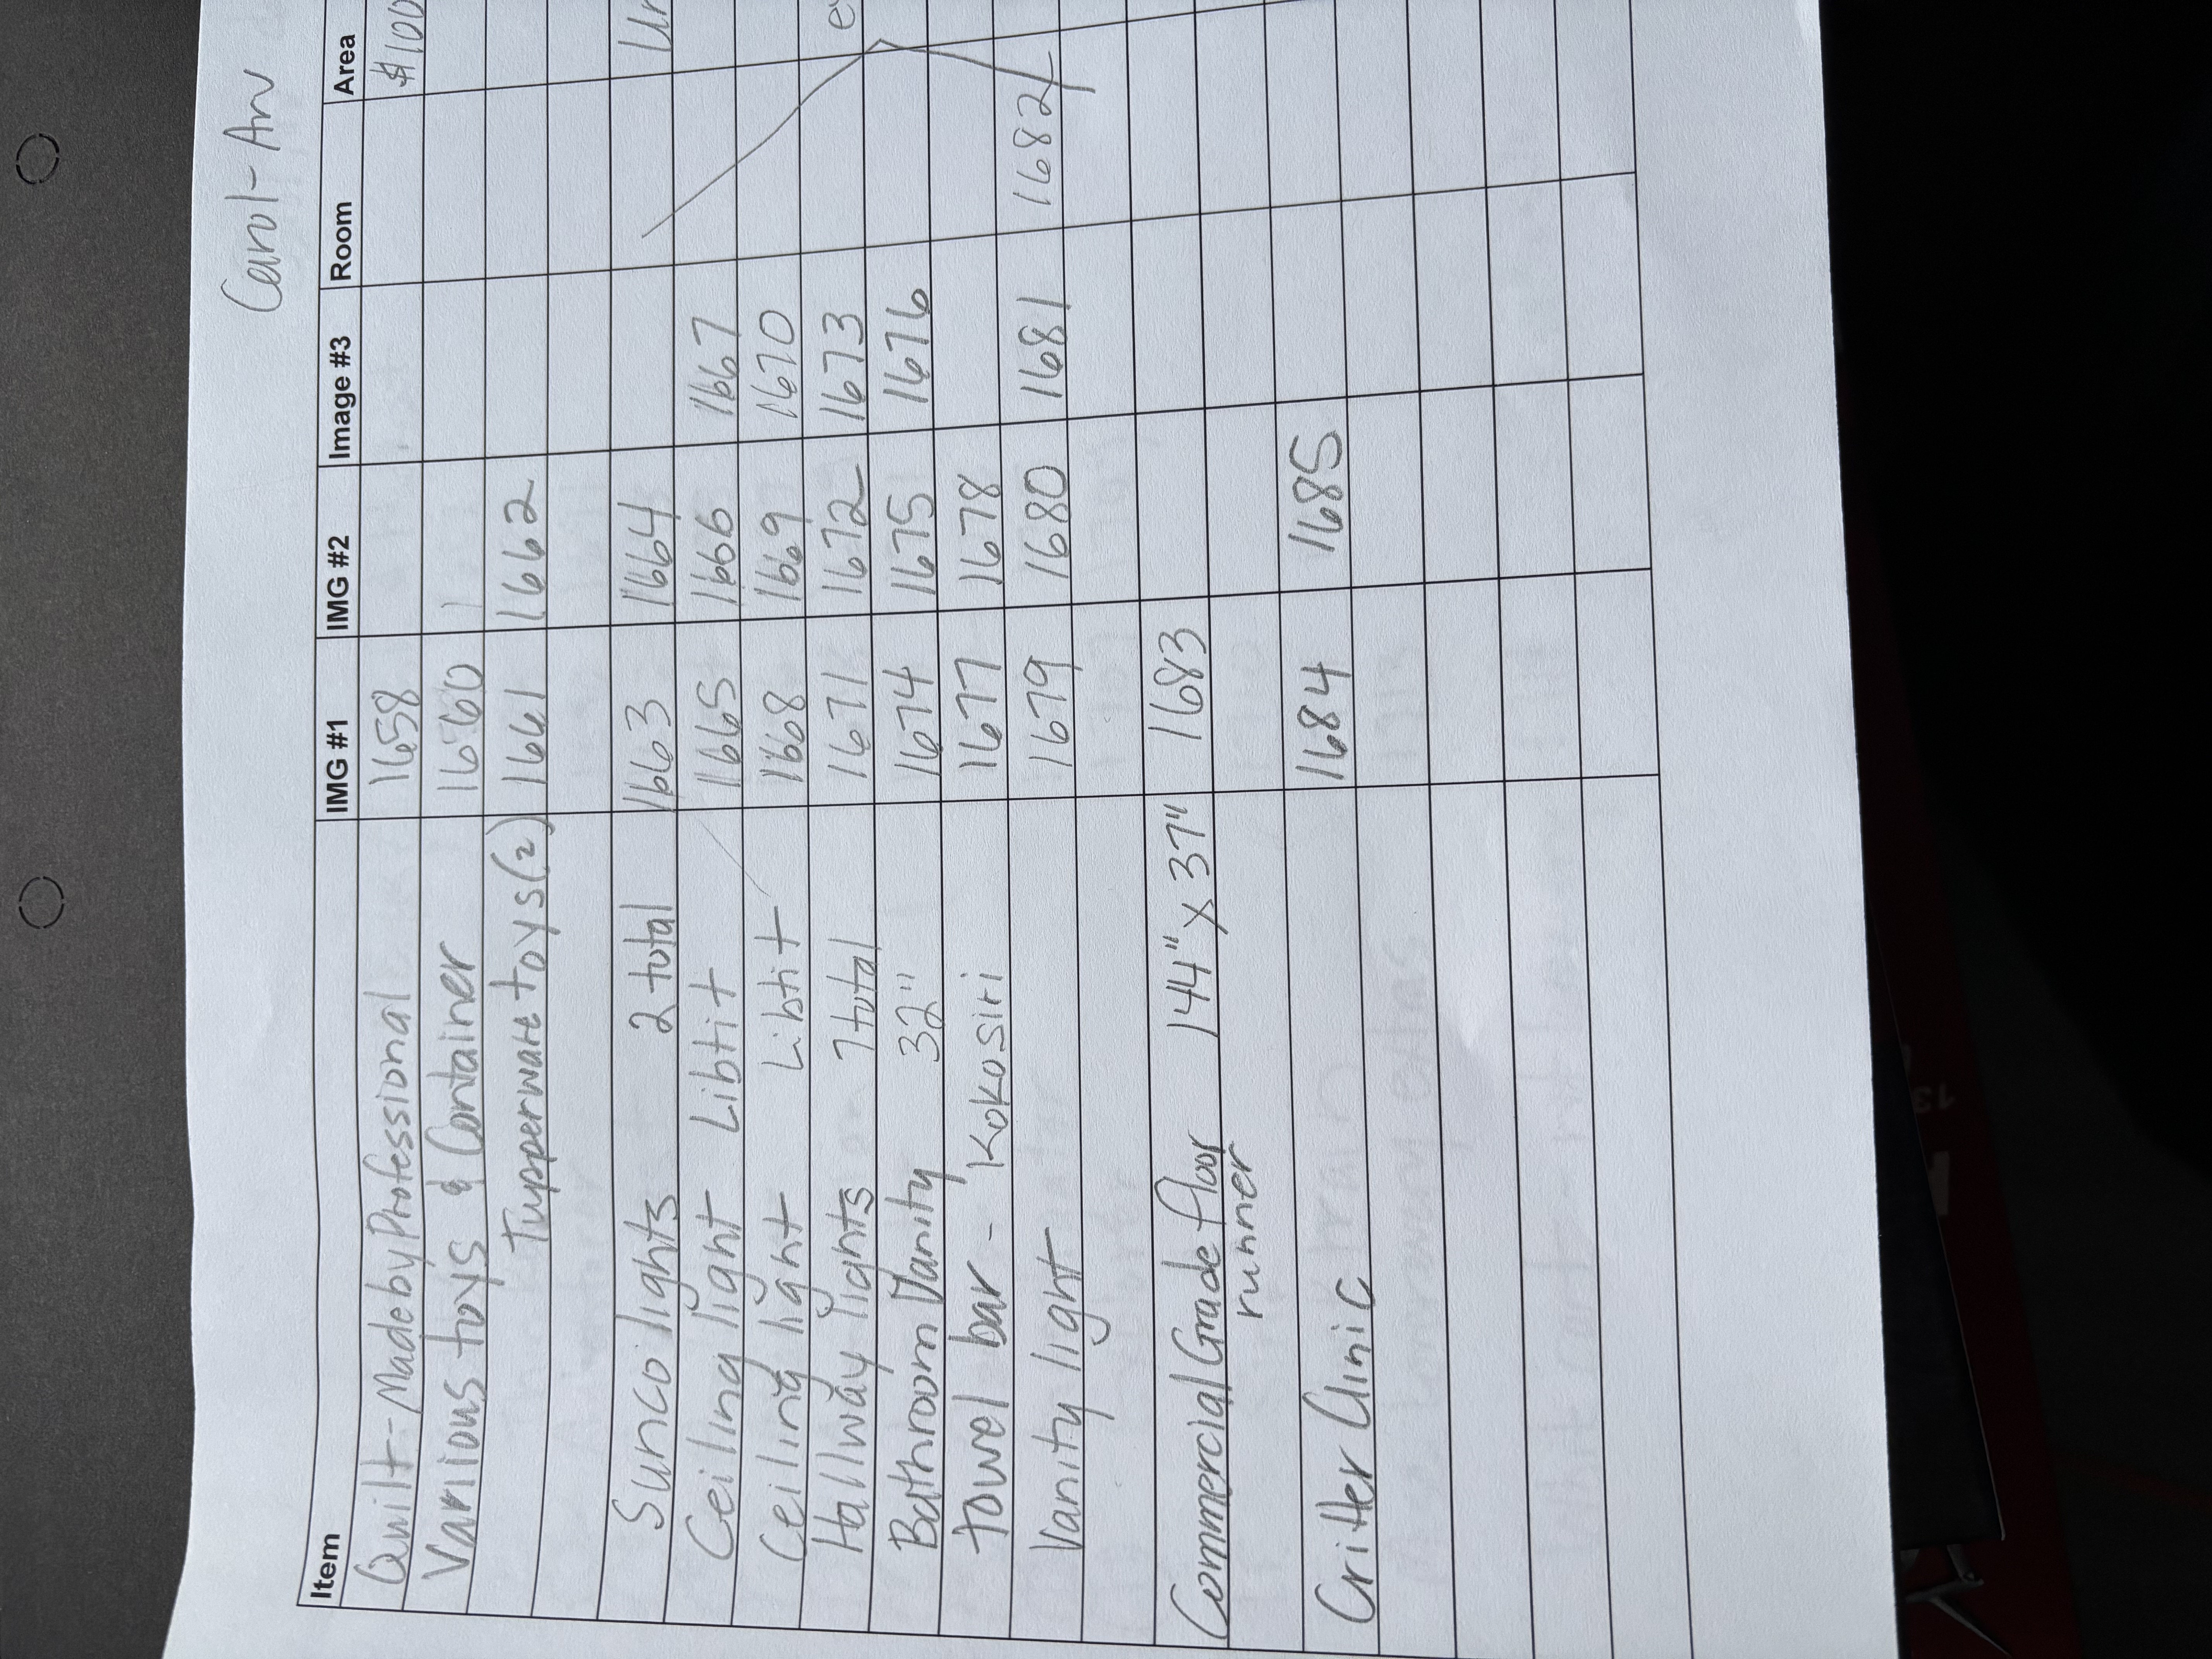 Carol-An
Item IMG #1 IMG #2 Image #3 Room Area
Quilt - Made by Professional 1658 $100
Various toys & Container 1660
Tupperware toys (2) 1661 1662
Sunco lights 2 total 1663 1664
Ceiling light Libtit 1665 1666 1667
Ceiling light Libtit 1668 1669 1670
Hallway lights 7 total 1671 1672 1673
Bathroom Vanity 32" 1674 1675 1676
Towel bar - Kokosiri 1677 1678
Vanity light 1679 1680 1681 1682
Commercial Grade floor 144" x 37" 1683
runner
Critter Clinic 1684 1685